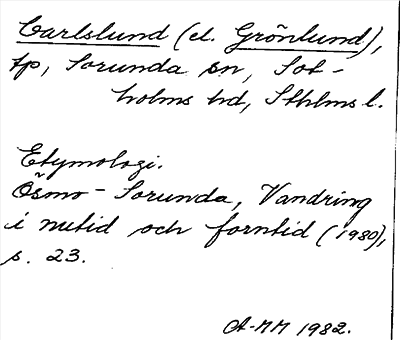 Carlslund (el. Grönlund),
tp, Sorunda sn, Sot-
holms hd, Sthlms l.
Etymologi.
Ösmo - Sorunda, Vandring
i nutid och forntid (1980),
s. 23.
A-MM 1982.